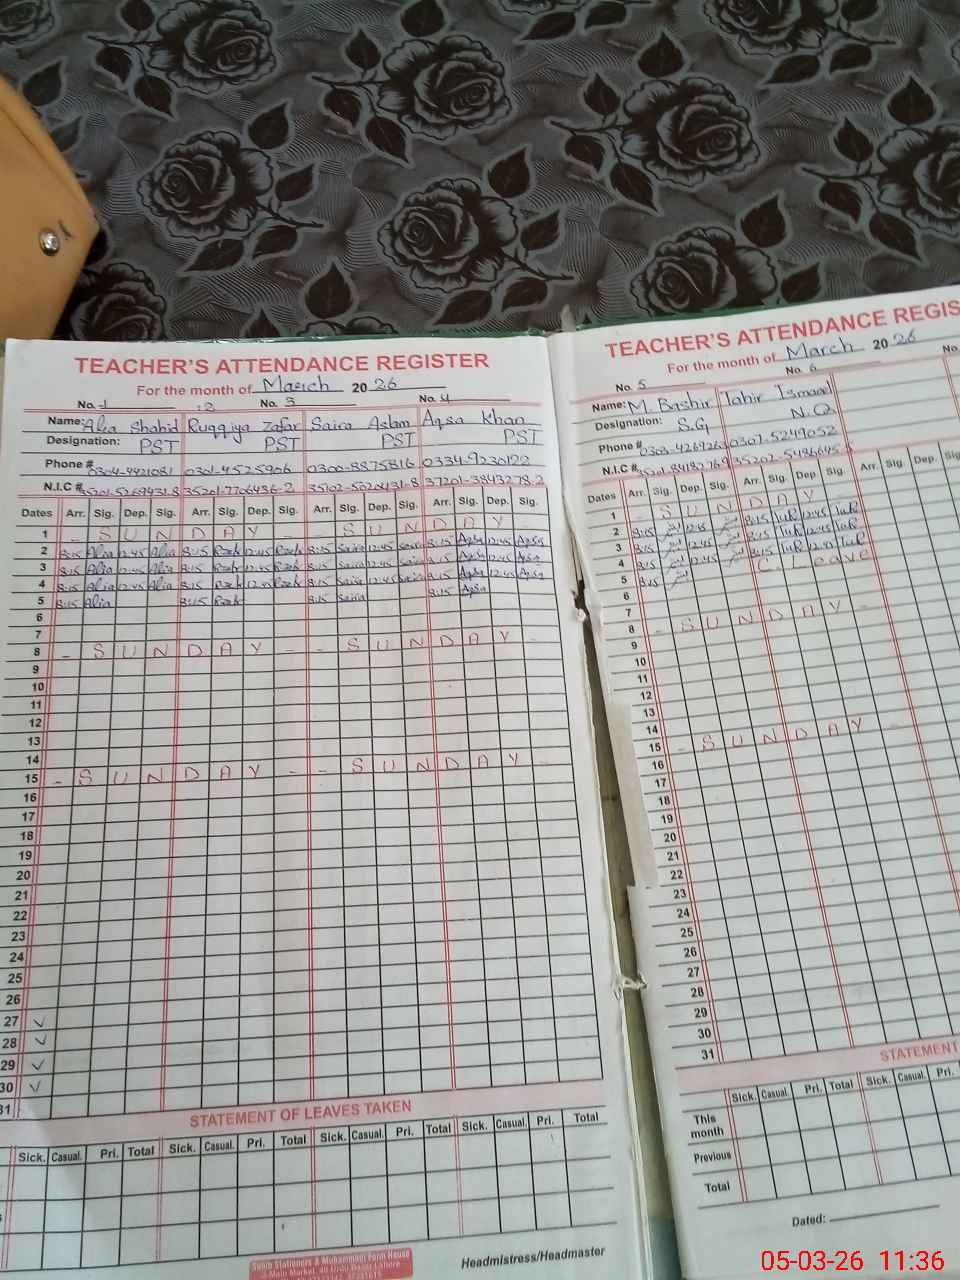 TEACHER'S ATTENDANCE REGISTER
For the month of March 2026
No. 1 2 No. 3 No. 4
Name: Alia Shahid Ruqqiya Zafar Saira Aslam Aqsa Khan
Designation: PST PST PST PST
Phone # 0304-4421081 0301-4525906 0300-8875816 0334-9230122
N.I.C # 35201-5269431-8 35201-7706436-2 35102-5020431-8 37201-3843278-2
Dates Arr. Sig. Dep. Sig. Arr. Sig. Dep. Sig. Arr. Sig. Dep. Sig. Arr. Sig. Dep. Sig.
1 - S U N D A Y - - S U N D A Y -
2 8:15 Alia 12:45 Alia 8:15 12:45 8:15 Saira 12:45 Saira 8:15 Aqsa 12:45 Aqsa
3 8:15 Alia 12:45 Alia 8:15 12:45 8:15 Saira 12:45 Saira 8:15 Aqsa 12:45 Aqsa
4 8:15 Alia 12:45 Alia 8:15 12:45 8:15 Saira 12:45 Saira 8:15 Aqsa 12:45 Aqsa
5 8:15 Alia 8:15 8:15 Saira 8:15 Aqsa
6
7
8 - S U N D A Y - - S U N D A Y -
9
10
11
12
13
14
15 - S U N D A Y - - S U N D A Y -
16
17
18
19
20
21
22
23
24
25
26
27 ✓
28 ✓
29 ✓
30 ✓
31
STATEMENT OF LEAVES TAKEN
Sick. Casual. Pri. Total Sick. Casual. Pri. Total Sick. Casual. Pri. Total Sick. Casual. Pri. Total
Headmistress/Headmaster
TEACHER'S ATTENDANCE REGIS
For the month of March 2026
No. 5 No. 6 No.
Name: M. Bashir Tahir Ismaeel
Designation: S.G N.Q
Phone # 0301-5249052
N.I.C #
Dates Arr. Sig. Dep. Sig. Arr. Sig. Dep. Sig. Arr. Sig. Dep. Sig.
1 - S U N D A Y -
2 8:15 12:45 8:15 12:45
3 8:15 12:45 8:15 12:45
4 8:15 12:45 8:15 12:45
5 8:15 C. Leave
6
7
8 - S U N D A Y -
9
10
11
12
13
14
15 - S U N D A Y -
16
17
18
19
20
21
22
23
24
25
26
27
28
29
30
31
STATEMENT
Sick. Casual. Pri. Total Sick. Casual. Pri.
This month
Previous
Total
Dated:
05-03-26 11:36